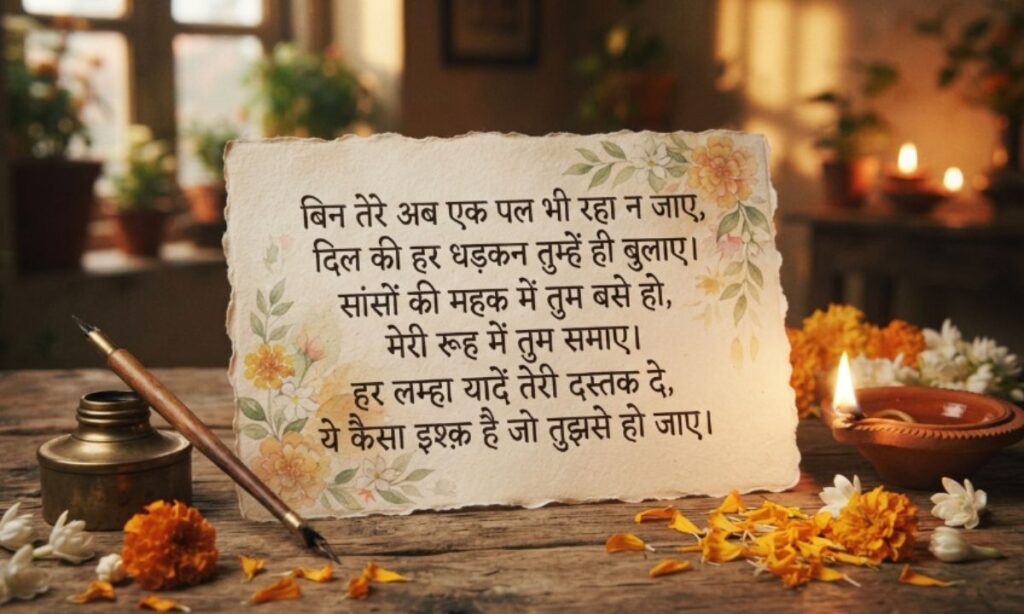 बिन तेरे अब एक पल भी रहा न जाए,
दिल की हर धड़कन तुम्हें ही बुलाए।
सांसों की महक में तुम बसे हो,
मेरी रूह में तुम समाए।
हर लम्हा यादें तेरी दस्तक दे,
ये कैसा इश्क़ है जो तुझसे हो जाए।